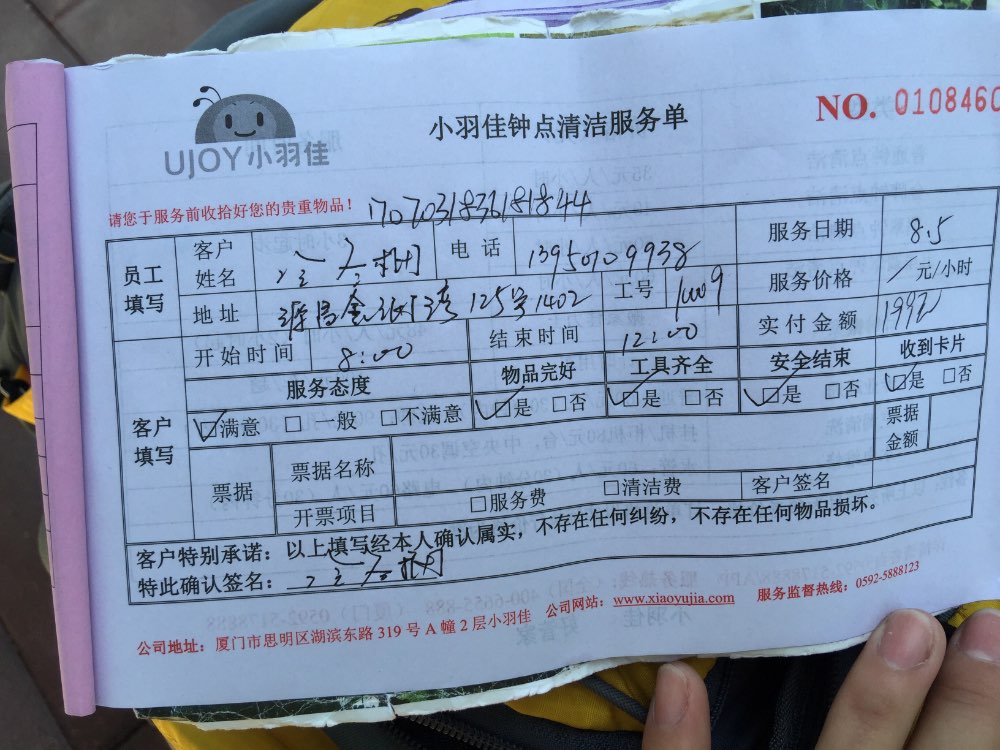 UJOY小羽佳
小羽佳钟点清洁服务单
NO. 0108460
请您于服务前收拾好您的贵重物品！
1707031836181844
员工填写
客户姓名
电话 13950109938
服务日期 8.5
地址 125号1402
工号 1009
服务价格 / 元/小时
客户填写
开始时间 8:00
结束时间 12:00
实付金额 1992
服务态度 物品完好 工具齐全 安全结束 收到卡片
☑满意 □一般 □不满意 ☑是 □否 ☑是 □否 ☑是 □否 ☑是 □否
票据
票据名称
票据金额
开票项目 □服务费 □清洁费 客户签名
客户特别承诺：以上填写经本人确认属实，不存在任何纠纷，不存在任何物品损坏。
特此确认签名：
公司地址：厦门市思明区湖滨东路319号A幢2层小羽佳 公司网站：www.xiaoyujia.com 服务监督热线：0592-5888123